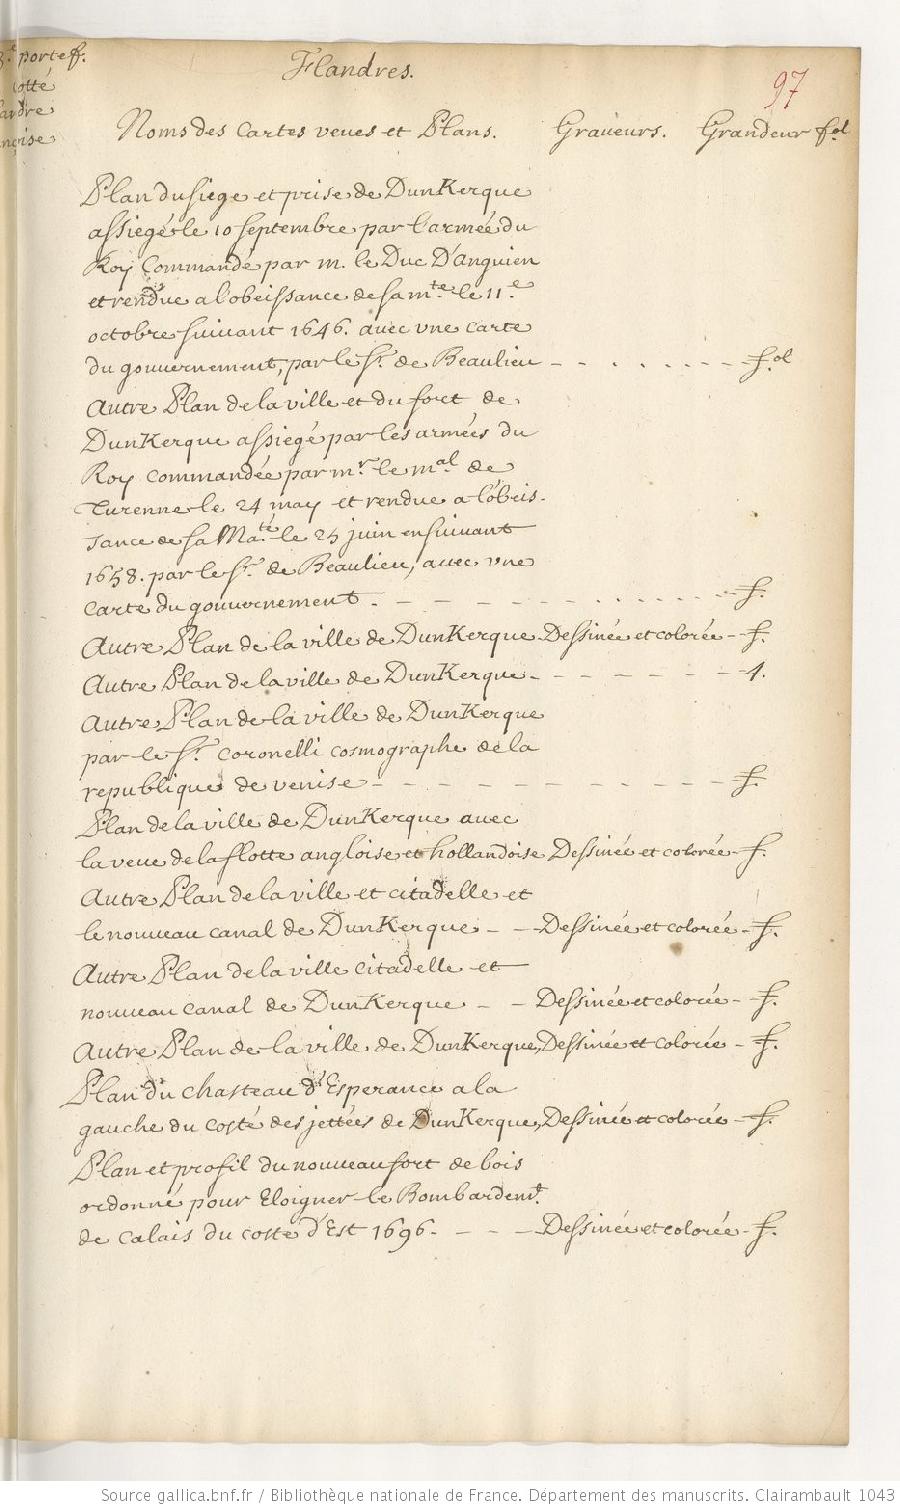 3.e portef.
cotté
andre
nçoise
Flandres.
97
Noms des Cartes veues et Plans. Graueurs. Grandeur fol
Plan du siege et prise de DunKerque
assiegé le 10 septembre par l'armée du
Roy Commandé par m. le Duc D'anguien
et rendue a l'obeissance de sa mté le 11.e
octobre suiuant 1646. auec vne carte
du gouuernement, par le sr. de Beaulieu - - . . . . - - - f.ol
Autre Plan de la ville et du fort de
DunKerque assiegé par les armées du
Roy commandée par mr. le mal. de
Turenne le 24 may et rendue a l'obeis.
sance de sa Ma.té le 25 juin ensuiuant
1658. par le sr. de Beaulieu, auec vne
Carte du gouuernement. - - - - - . . . . . . - - f.
Autre Plan de la ville de DunKerque Dessinée et colorée - f.
Autre Plan de la ville de DunKerque - - - - - - - - 4.
Autre Plan de la ville de DunKerque
par le sr. coronelli cosmographe de la
republique de venise - - - - - - - - - - f.
Plan de la ville de DunKerque auec
la veue de la flotte angloise et hollandoise Dessinée et colorée - f.
Autre Plan de la ville et citadelle et
le nouueau canal de DunKerque - - - Dessinée et colorée - f.
Autre Plan de la ville citadelle et
nouueau canal de DunKerque - - Dessinée et colorée - f.
Autre Plan de la ville de DunKerque, Dessinée et colorée - f.
Plan du chasteau d'Esperance a la
gauche du costé des jettées de DunKerque, Dessinée et colorée - f.
Plan et profil du nouueau fort de bois
ordonné pour Eloigner le Bombardemt.
de Calais du costé d'Est 1696. - - - Dessinée et colorée - f.
Source gallica.bnf.fr / Bibliothèque nationale de France. Département des manuscrits. Clairambault 1043